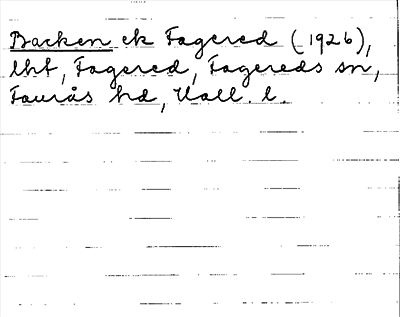 Backen ek Fagered (1926),
lht, Fagered, Fagereds sn,
Faurås hd, Hall. l.